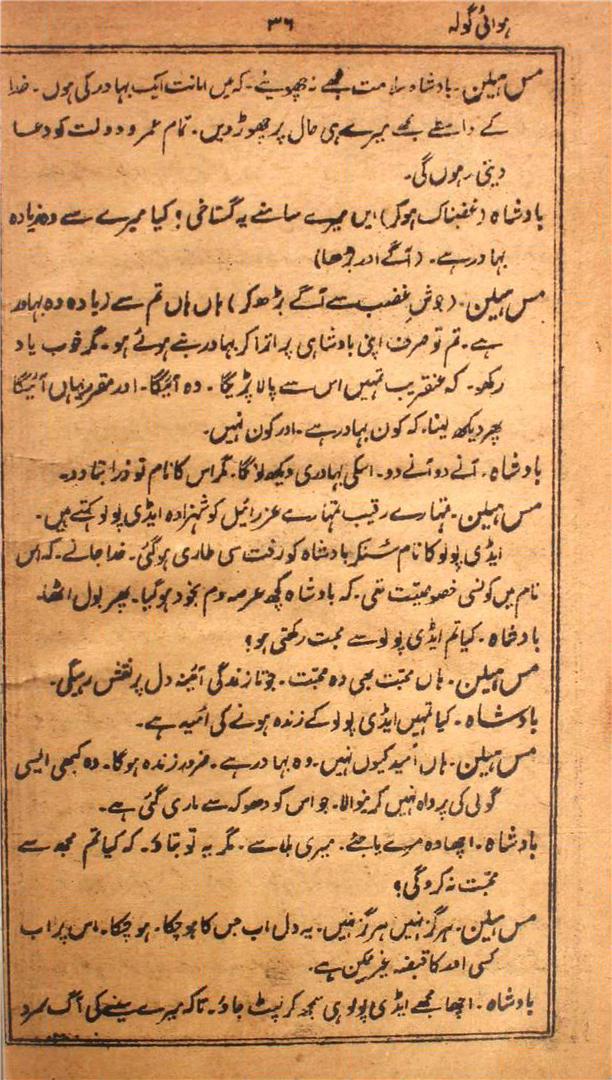 ہوائی گولہ ۳۶
مس ہیلن۔ بادشاہ سلامت مجھے نہ چھویئے۔ کہ میں امانت ایک بہادر کی ہوں۔ خدا
کے واسطے مجھے میرے ہی حال پر چھوڑ دیں۔ تمام عمر و دولت کو دعا
دیتی رہوں گی۔
بادشاہ (غضبناک ہوکر) ایں میرے سامنے یہ گستاخی؟ کیا میرے سے وہ زیادہ
بہادر ہے۔ (آگے اور بڑھا)
مس ہیلن۔ (جوش غضب سے آگے بڑھ کر) ہاں ہاں تم سے زیادہ وہ بہادر
ہے۔ تم تو صرف اپنی بادشاہی پر اترا کر بہادر بنے ہوئے ہو۔ مگر خوب یاد
رکھو۔ کہ عنقریب تمہیں اس سے پالا پڑیگا۔ وہ آئیگا۔ اور مقرر یہاں آئیگا
پھر دیکھ لینا۔ کہ کون بہادر ہے۔ اور کون نہیں۔
بادشاہ۔ آنے دو آنے دو۔ اسکی بہادری دیکھ لونگا۔ مگر اس کا نام تو ذرا بتا دو۔
مس ہیلن۔ تمہارے رقیب تمہارے عزرائیل کو شہزادہ ایڈی پولو کہتے ہیں۔
ایڈی پولو کا نام سُنکر بادشاہ کو رقت سی طاری ہوگئی۔ خدا جانے۔ کہ اس
نام میں کونسی خصوصیّت تھی۔ کہ بادشاہ کچھ عرصہ دم بخود ہوگیا۔ پھر بول اٹھا
بادشاہ۔ کیا تم ایڈی پولو سے محبت رکھتی ہو؟
مس ہیلن۔ ہاں محبّت بھی وہ محبّت۔ جو تا زندگی آئینہ دل پر نقش رہیگی۔
بادشاہ۔ کیا تمہیں ایڈی پولو کے زندہ ہونے کی امید ہے۔
مس ہیلن۔ ہاں اُمید کیوں نہیں۔ وہ بہادر ہے۔ ضرور زندہ ہوگا۔ وہ کبھی ایسی
گولی کی پرواہ نہیں کرنیوالا۔ جو اس کو دھوکہ سے ماری گئی ہے۔
بادشاہ۔ اچھا وہ مرے یا جئے۔ میری بلا سے۔ مگر یہ تو بتاؤ۔ کہ کیا تم مجھ سے
محبّت نہ کروگی؟
مس ہیلن۔ ہرگز نہیں ہرگز نہیں۔ یہ دل اب جس کا ہوچکا۔ ہوچکا۔ اس پر اب
کسی اور کا قبضہ غیر ممکن ہے۔
بادشاہ۔ اچھا مجھے ایڈی پولو ہی سمجھ کر لپٹ جاؤ۔ تاکہ میرے سینے کی آگ سرد